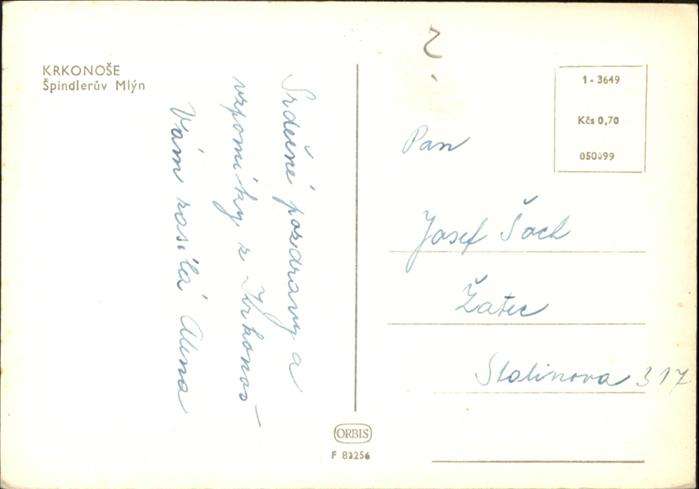 KRKONOŠE
Špindlerův Mlýn
Srdečné pozdravy a
vzpomínky z Krkonoš
Vám zasílá Alena
1 - 3649
Kčs 0,70
050099
Pan
Josef Šoch
Žatec
Stalinova 317
ORBIS
F 82256